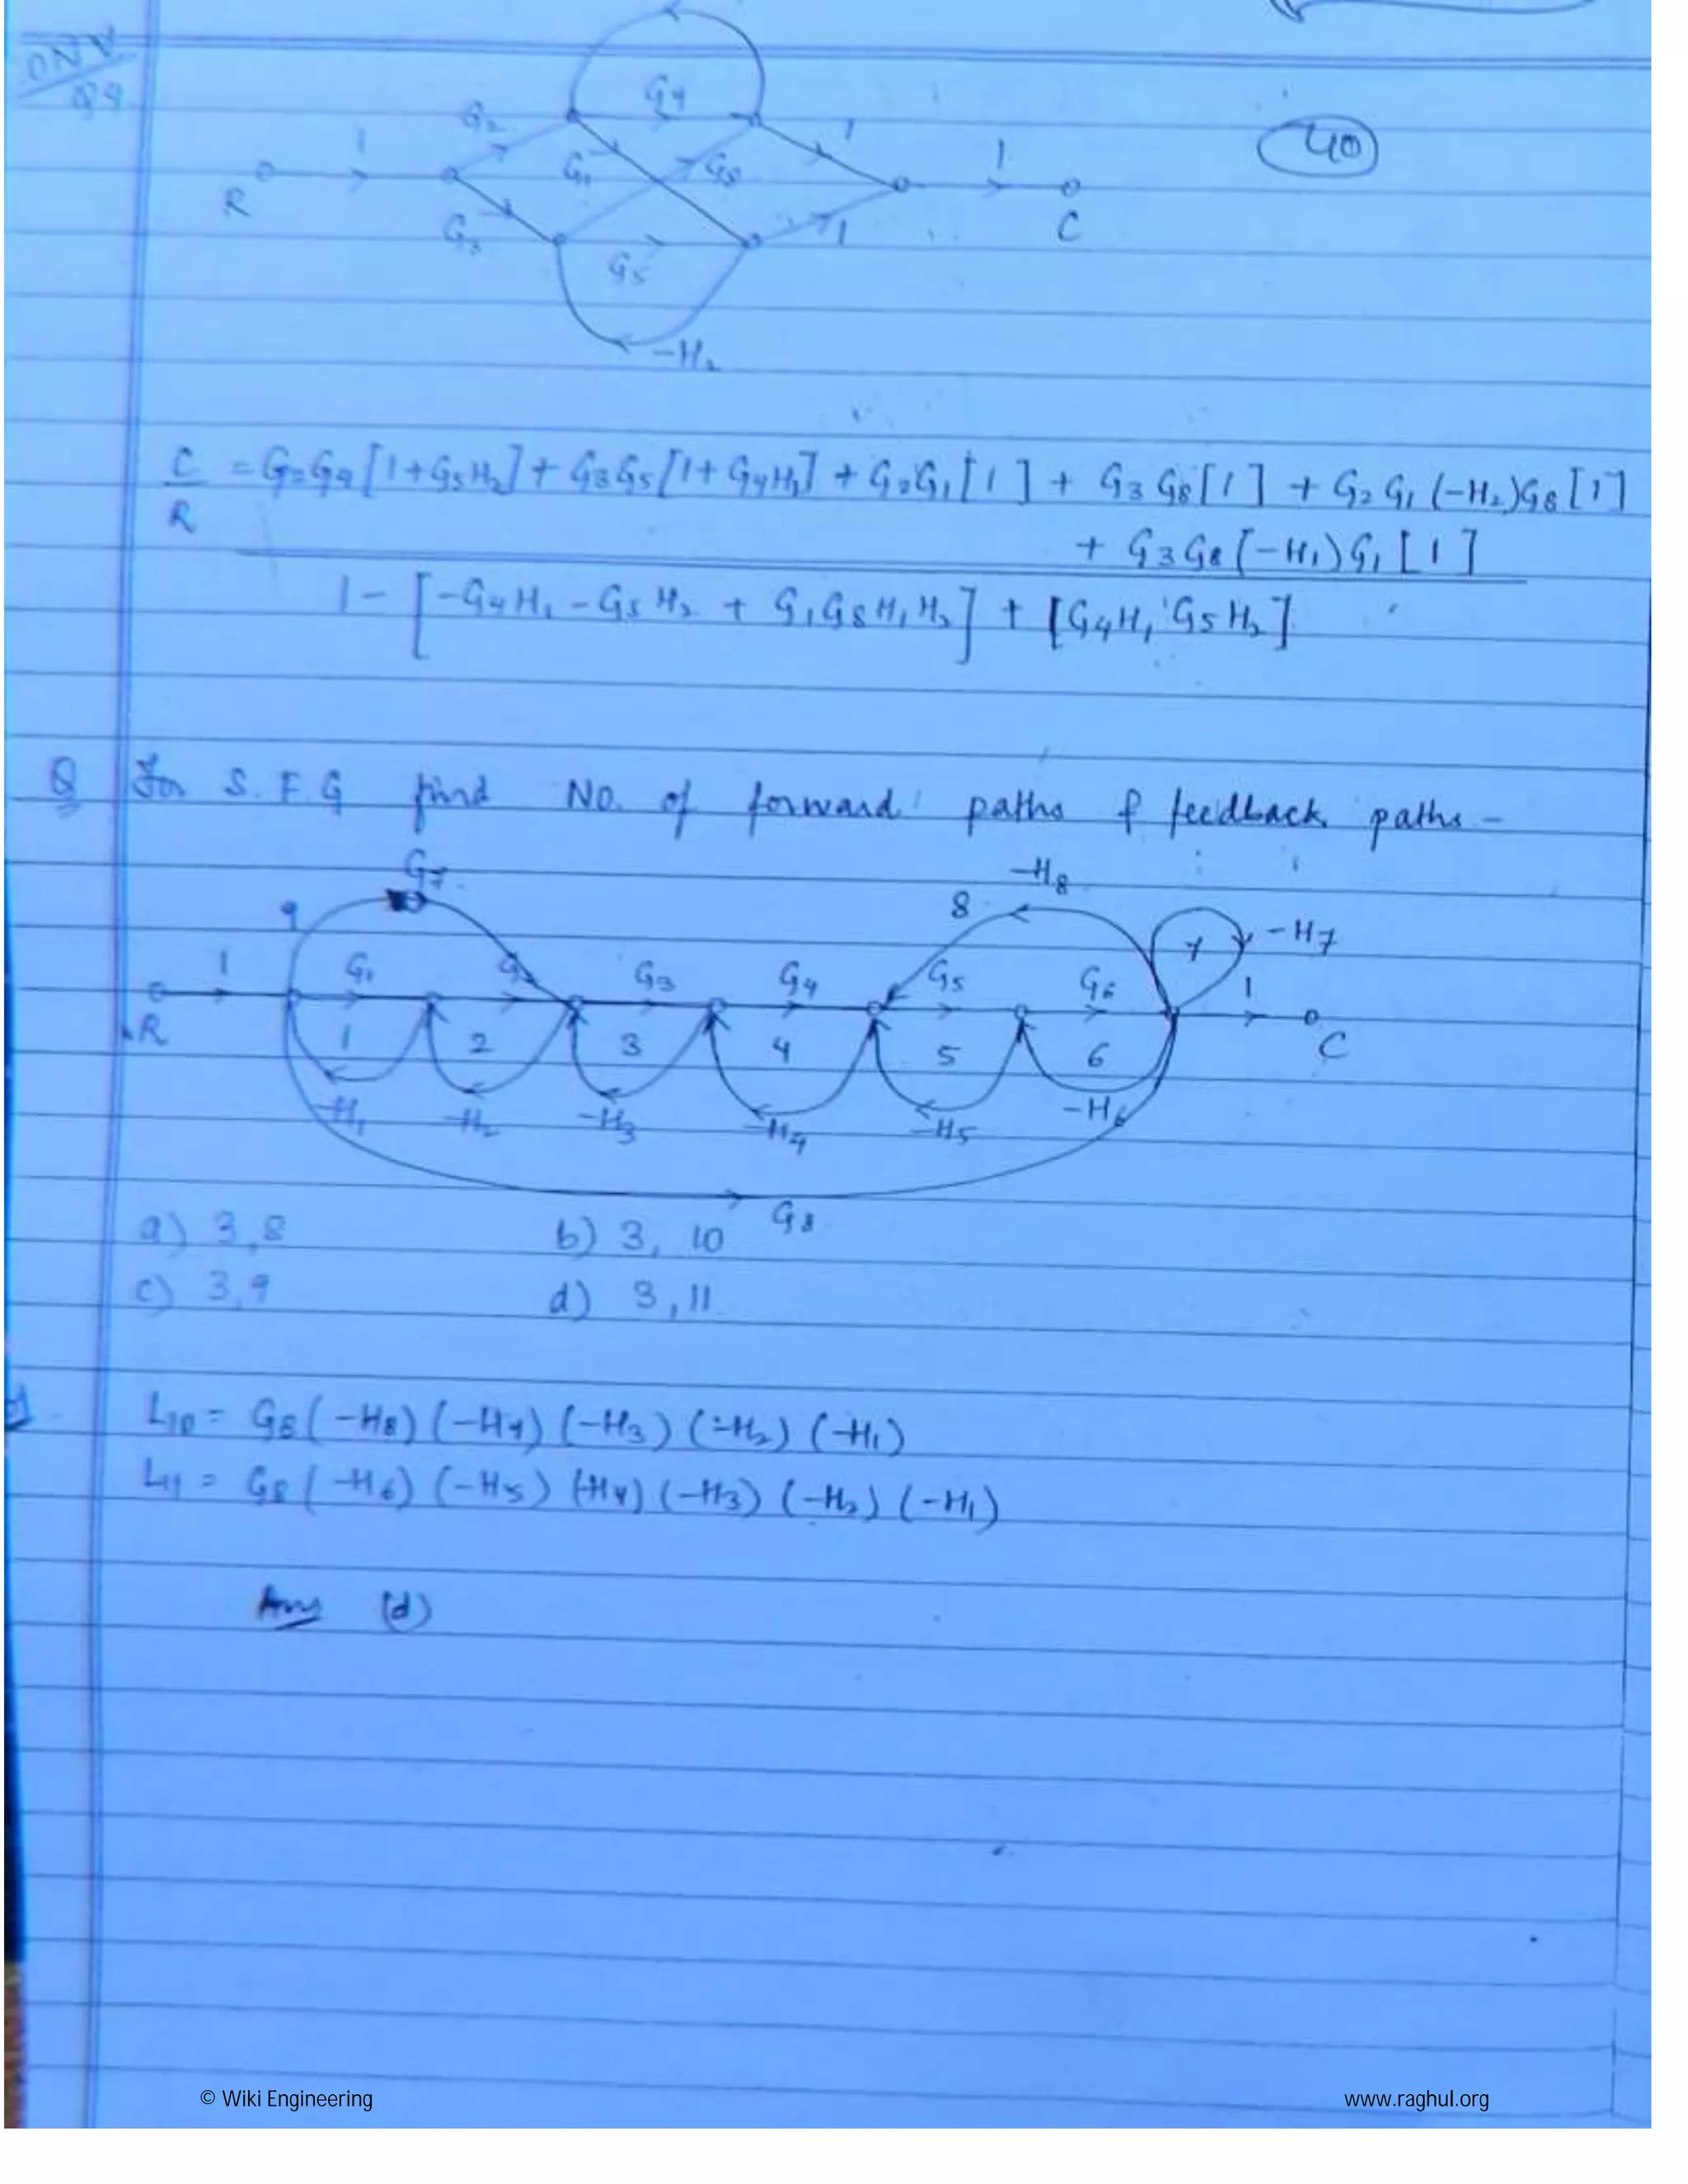 CNV
89
G4
G2
1
1
1
40
G1
G8
R
G3
1
C
G5
-H2
C/R = G2G4[1+G5H2] + G3G5[1+G4H1] + G2G1[1] + G3G8[1] + G2G1(-H2)G8[1]
+ G3G8(-H1)G1[1]
1 - [-G4H1 - G5H2 + G1G8H1H2] + [G4H1 G5H2]
Q For S.F.G find No. of forward paths & feedback paths -
G7
-H8
9
8
7
-H7
1
G1
G2
G3
G4
G5
G6
1
R
1
2
3
4
5
6
C
-H1
-H2
-H3
-H4
-H5
-H6
G8
a) 3,8 b) 3, 10
c) 3,9 d) 3,11
L10 = G8(-H8)(-H4)(-H3)(-H2)(-H1)
L11 = G8(-H6)(-H5)(-H4)(-H3)(-H2)(-H1)
Ans (d)
© Wiki Engineering www.raghul.org